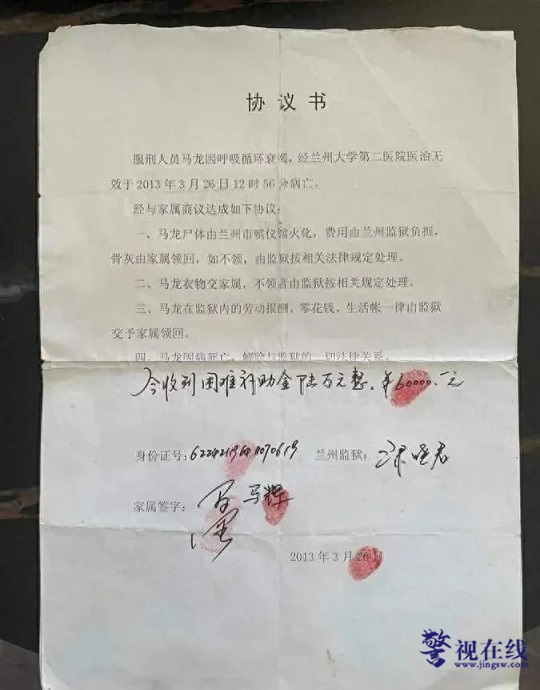 协议书
服刑人员马龙因呼吸循环衰竭，经兰州大学第二医院医治无
效于2013年3月26日12时56分病亡。
经与家属商议达成如下协议：
一、马龙尸体由兰州市殡仪馆火化，费用由兰州监狱负担，
骨灰由家属领回，如不领，由监狱按相关法律规定处理。
二、马龙衣物交家属，不领者由监狱按相关规定处理。
三、马龙在监狱内的劳动报酬、零花钱、生活帐一律由监狱
交予家属领回。
四、马龙因病死亡，解除与监狱的一切法律关系。
今收到困难补助金陆万元整。¥60000.元
身份证号： 兰州监狱：
马辉
家属签字：
2013年3月26日
警视在线
www.jingsw.com